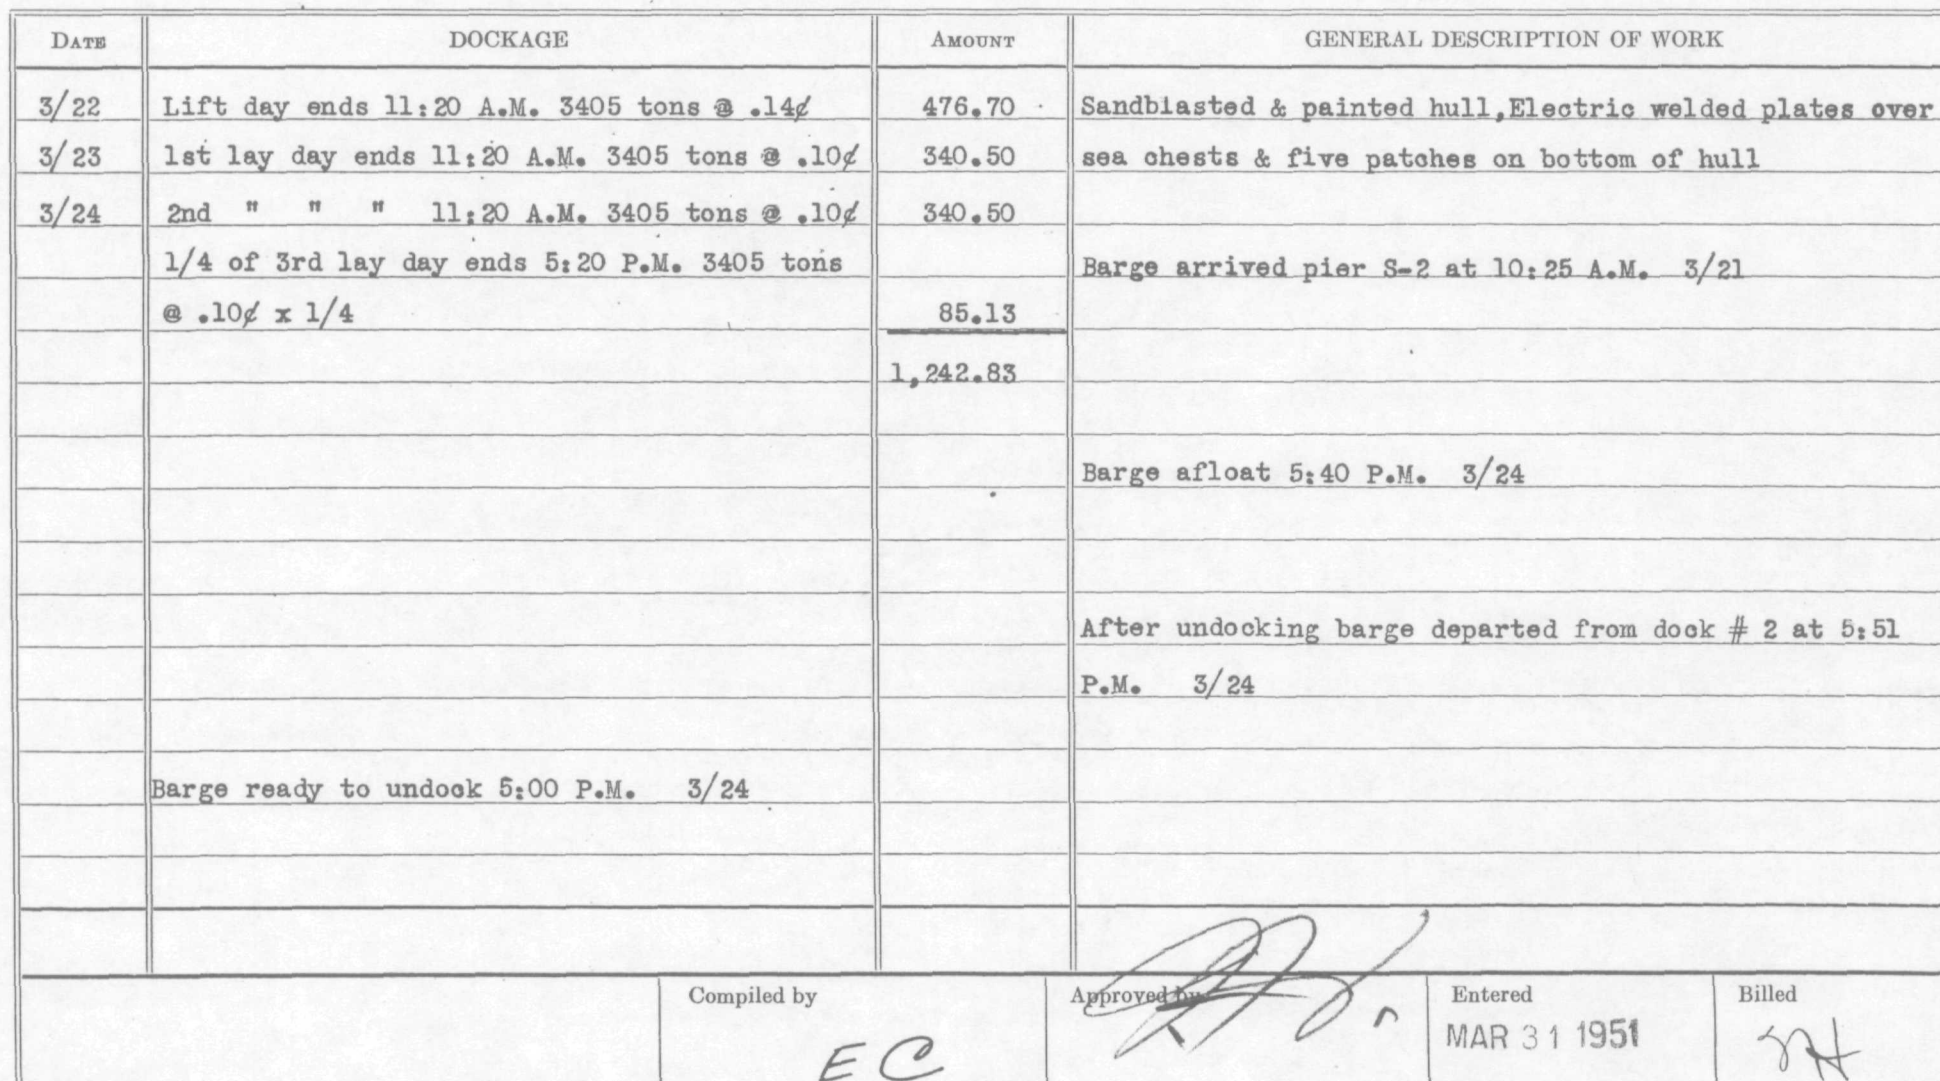 DATE DOCKAGE AMOUNT GENERAL DESCRIPTION OF WORK
3/22 Lift day ends 11:20 A.M. 3405 tons @ .14¢ 476.70 Sandblasted & painted hull,Electric welded plates over
3/23 1st lay day ends 11:20 A.M. 3405 tons @ .10¢ 340.50 sea chests & five patches on bottom of hull
3/24 2nd " " " 11:20 A.M. 3405 tons @ .10¢ 340.50
1/4 of 3rd lay day ends 5:20 P.M. 3405 tons Barge arrived pier S-2 at 10:25 A.M. 3/21
@ .10¢ x 1/4 85.13
1,242.83
Barge afloat 5:40 P.M. 3/24
After undocking barge departed from dock # 2 at 5:51
P.M. 3/24
Barge ready to undock 5:00 P.M. 3/24
Compiled by Approved by Entered Billed
EC MAR 31 1951